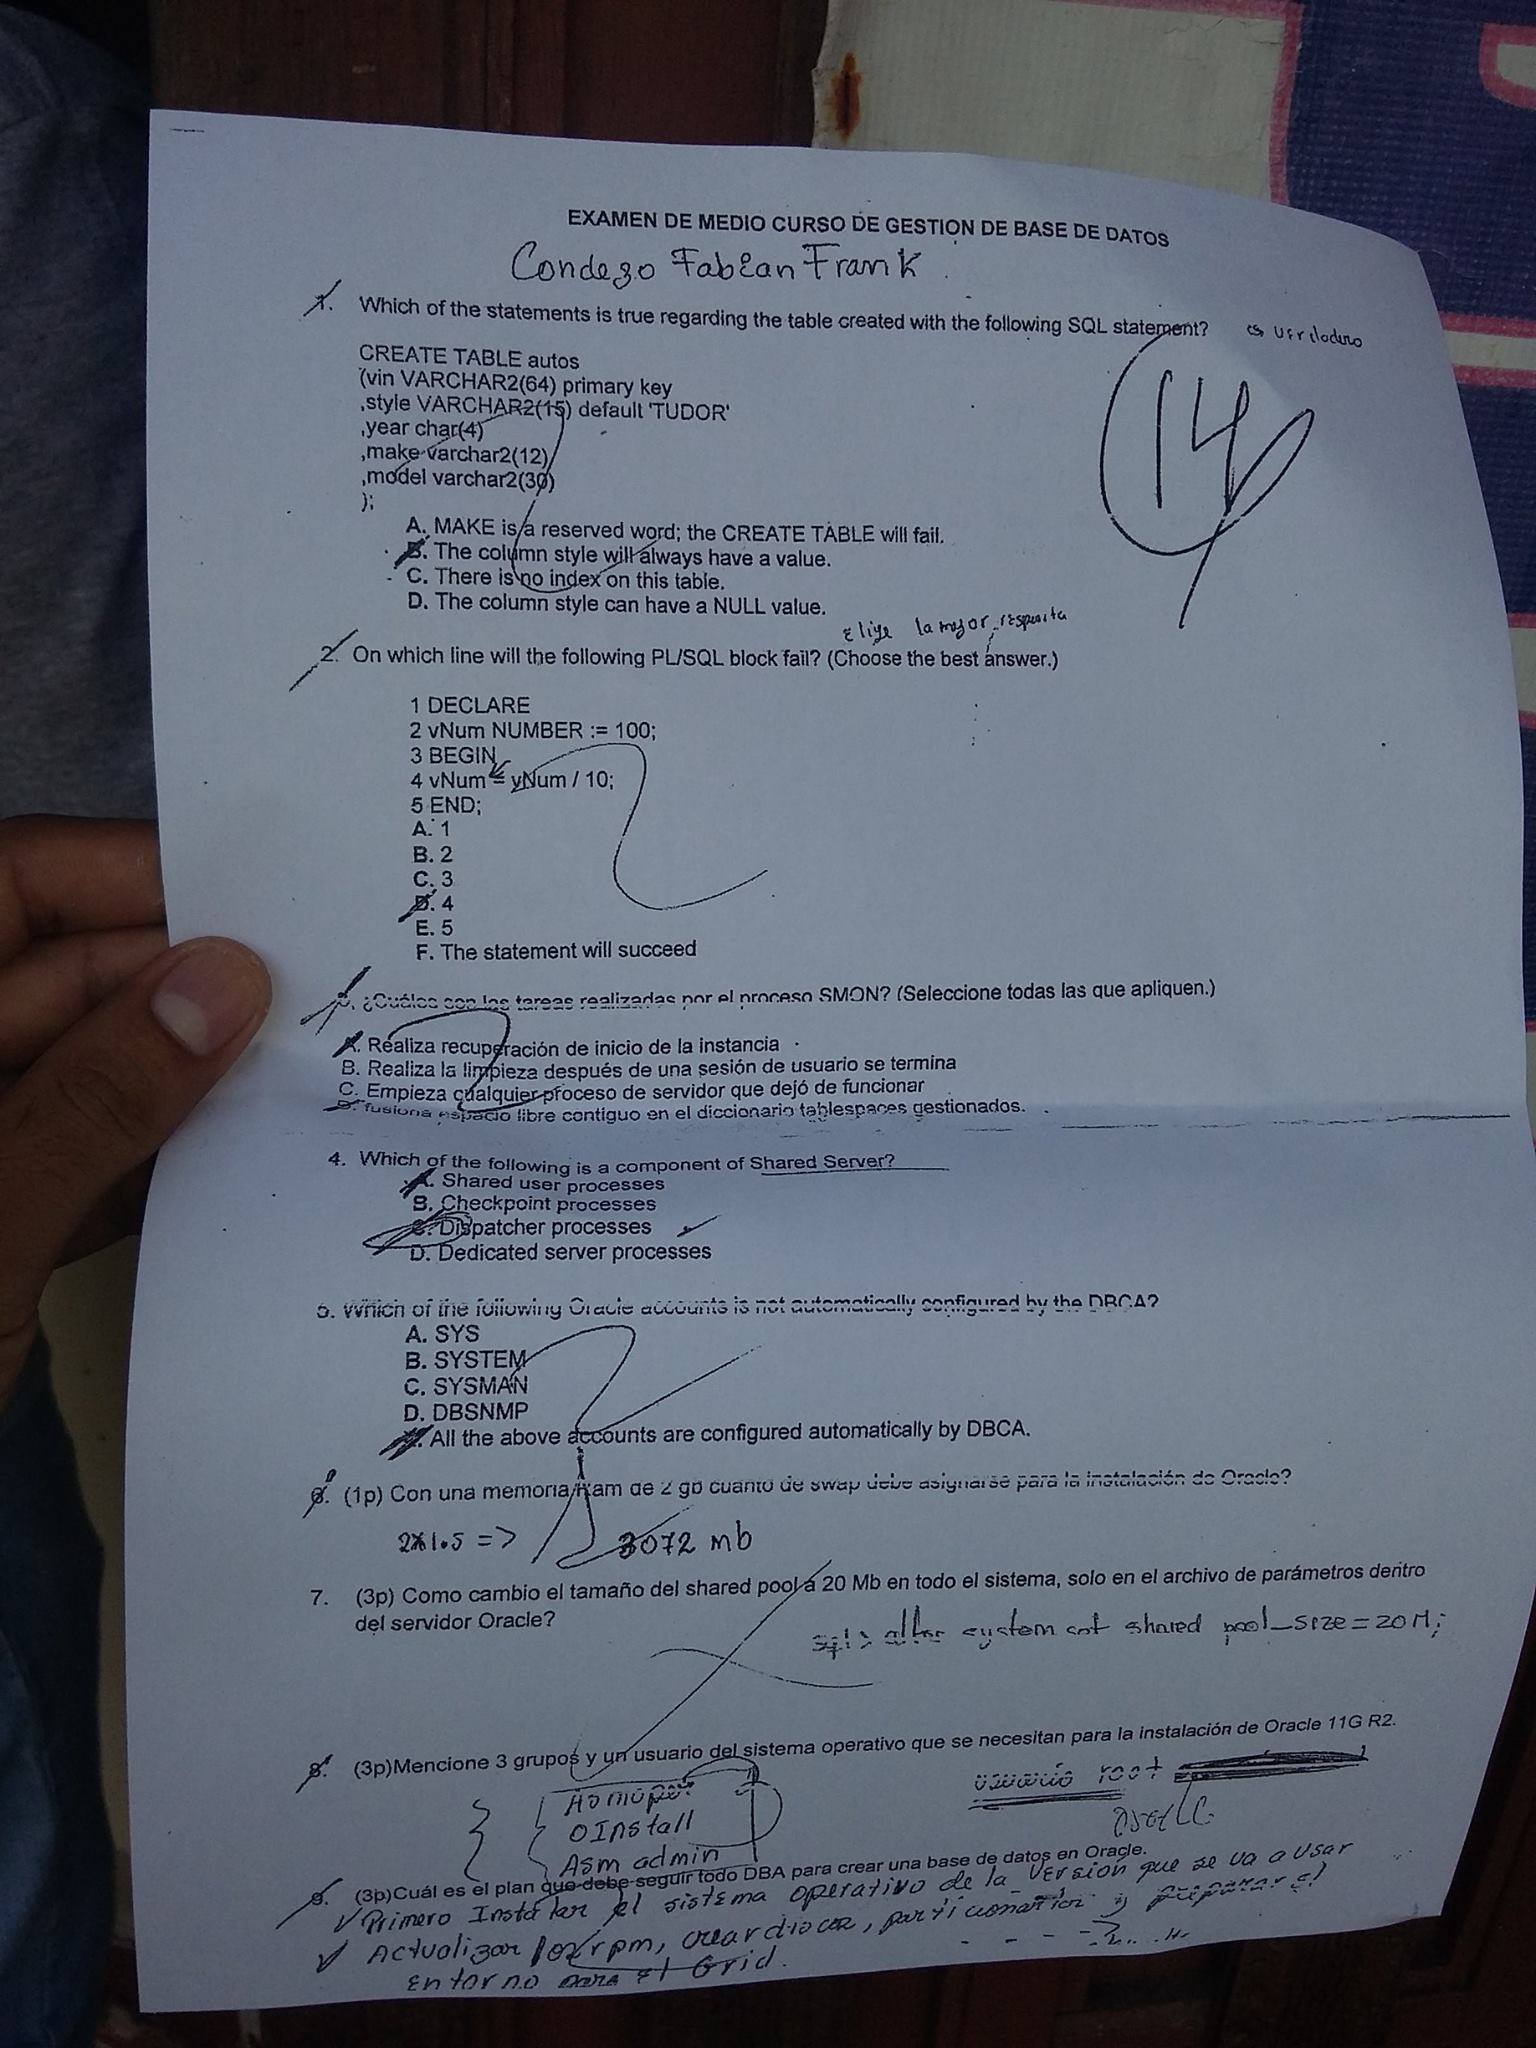 EXAMEN DE MEDIO CURSO DE GESTION DE BASE DE DATOS
Condezo Fabian Frank
1. Which of the statements is true regarding the table created with the following SQL statement? es verdadero
CREATE TABLE autos
(vin VARCHAR2(64) primary key
,style VARCHAR2(15) default 'TUDOR'
,year char(4)
,make varchar2(12)
,model varchar2(30)
);
14
A. MAKE is a reserved word; the CREATE TABLE will fail.
B. The column style will always have a value.
C. There is no index on this table.
D. The column style can have a NULL value.
Elige la mejor respuesta
2. On which line will the following PL/SQL block fail? (Choose the best answer.)
1 DECLARE
2 vNum NUMBER := 100;
3 BEGIN
4 vNum = vNum / 10;
5 END;
2
A. 1
B. 2
C. 3
D. 4
E. 5
F. The statement will succeed
3. ¿Cuáles son las tareas realizadas por el proceso SMON? (Seleccione todas las que apliquen.)
A. Realiza recuperación de inicio de la instancia
B. Realiza la limpieza después de una sesión de usuario se termina
C. Empieza cualquier proceso de servidor que dejó de funcionar
D. fusiona espacio libre contiguo en el diccionario tablespaces gestionados.
4. Which of the following is a component of Shared Server?
A. Shared user processes
B. Checkpoint processes
C. Dispatcher processes
D. Dedicated server processes
5. Which of the following Oracle accounts is not automatically configured by the DBCA?
A. SYS
B. SYSTEM
C. SYSMAN
D. DBSNMP
All the above accounts are configured automatically by DBCA.
6. (1p) Con una memoria Ram de 2 gb cuanto de swap debe asignarse para la instalación de Oracle?
2x1.5 => 3072 mb
7. (3p) Como cambio el tamaño del shared pool a 20 Mb en todo el sistema, solo en el archivo de parámetros dentro
del servidor Oracle?
sql> alter system set shared pool_size=20M;
8. (3p)Mencione 3 grupos y un usuario del sistema operativo que se necesitan para la instalación de Oracle 11G R2.
usuario root
OInstall
Asm admin
9. (3p)Cuál es el plan que debe seguir todo DBA para crear una base de datos en Oracle.
✓ Primero Instalar el sistema operativo de la versión que se va a usar
✓ Actualizar los rpm, crear discos, particionarlos y preparar el
entorno para el Grid.